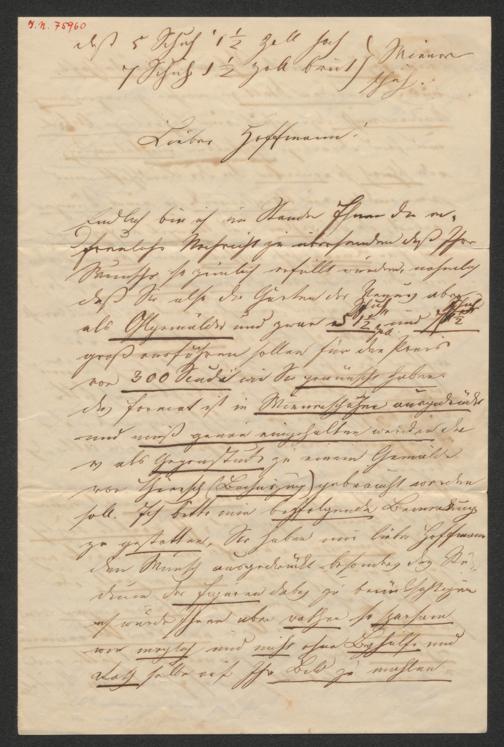 J. N. 75960
daß 5 Schuh 1 1/2 Zoll hoch
7 Schuh 1 1/2 Zoll breit Wiener
Lieber Hoffmann!
Endlich bin ich im Stande Ihnen die er-
freuliche Nachricht zu übersenden daß Ihre
Wünsche so ziemlich erfüllt werden, nehmlich
daß Sie also die Gärten der Venus aber
als Ölgemälde und zwar 5 1/2 und
groß ausführen sollen für den Preis
von 300 Scudi wie Sie gewünscht haben.
das Format ist in Wienerschuhe ausgedrückt
und muß genau eingehalten werden da
es als Gegenstück zu einem Gemälde
von gebraucht werden
soll. Ich bitte nun beyfolgende Bemerkung
zu gestatten, Sie haben mir lieber Hoffmann
den Wunsch ausgedrückt besonders das
der Figuren dabei zu berücksichtigen
ich würde Ihnen aber rathen so sparsam
wie möglich und nicht ohne Beyhülfe und
Rath selbe auf Ihr Bild zu mahlen